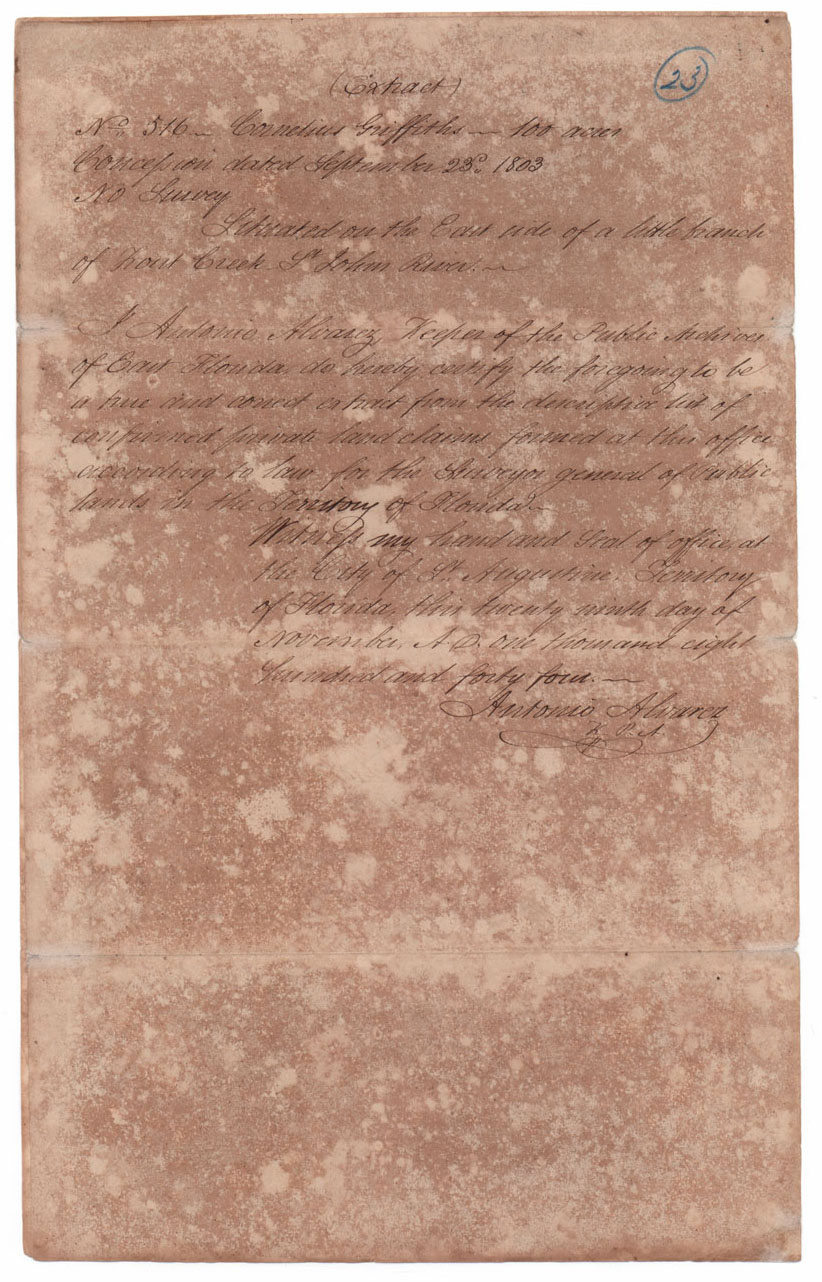 23
(Extract)
No. 516 — Cornelius Griffiths — 100 acres
Concession dated September 23d. 1803
No Survey
Situated on the East side of a little branch
of Trout Creek St. Johns River. —
I Antonio Alvarez, Keeper of the Public Archives
of East Florida, do hereby certify the foregoing to be
a true and correct extract from the descriptive list of
confirmed private land claims, formed at this office
according to law for the Surveyor general of Public
lands in the Territory of Florida. —
Witness my hand and Seal of office, at
the City of St. Augustine, Territory
of Florida, this twenty ninth day of
November, A.D. one thousand eight
hundred and forty four. —
Antonio Alvarez
K. P. A